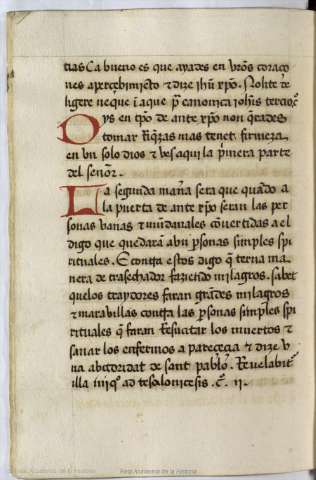 tias Ca bueno es que ayades en vr̃os coraço
nes aperçebimiẽto ⁊ dize ihũ xp̃o. Nolite di
ligere neque
Oys en tp̃o de ante xp̃o non q̃rades
tomar riq̃zas mas tenet firmeza
en vn solo dios ⁊ ves aqui la p̃mera parte
del señor.
La segunda mañra sera que quãdo a
la puerta de ante xp̃o seran las per
sonas vanas ⁊ mũdanales cõuertidas a el
digo que quedarã avn p̃sonas simples spi
rituales. E contra estos digo q̃ terna ma
nera de trasechador faziendo milagros. sabet
quelos traydores faran grãdes milagros
⁊ marauillas contra las p̃sonas simples spi
rituales q̃ faran resuçitar los muertos ⁊
sanar los enfermos a pareçençia ⁊ dize v
na abtoridat de sant pablo. Reuelabit̃
ille iniq̃ ad tesalonicẽsis. c̃. ii.
Real Academia de la Historia